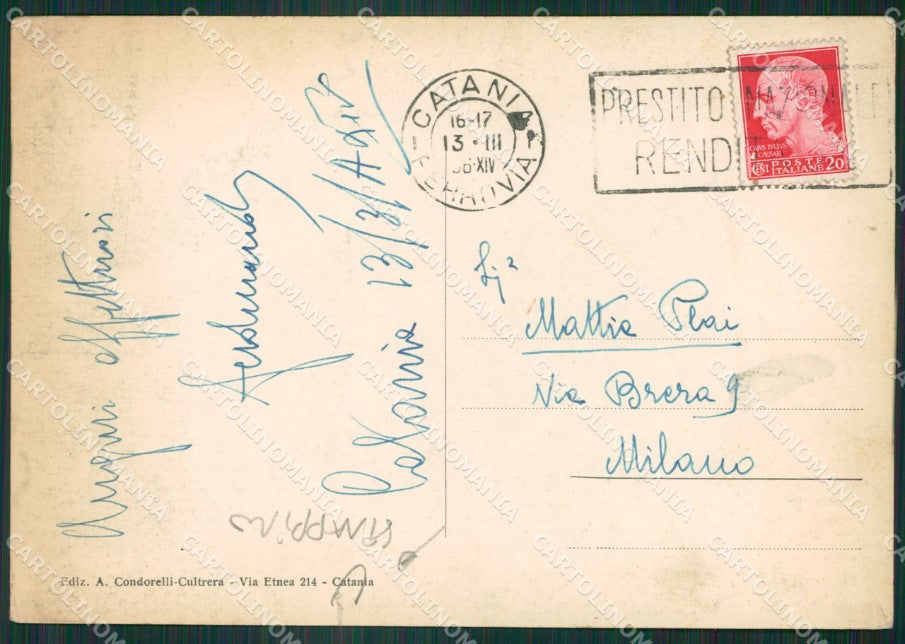 CATANIA
16-17
13·III
36·XIV
FERROVIA
PRESTITO NAZIONALE
REND
CAIVS IVLIVS
CAESAR
CENT POSTE ITALIANE 20
Auguri affettuosi
Catania 13/3/
Mattia
Via Brera 9
Milano
Ediz. A. Condorelli-Cultrera - Via Etnea 214 - Catania
CARTOLINOMANIA